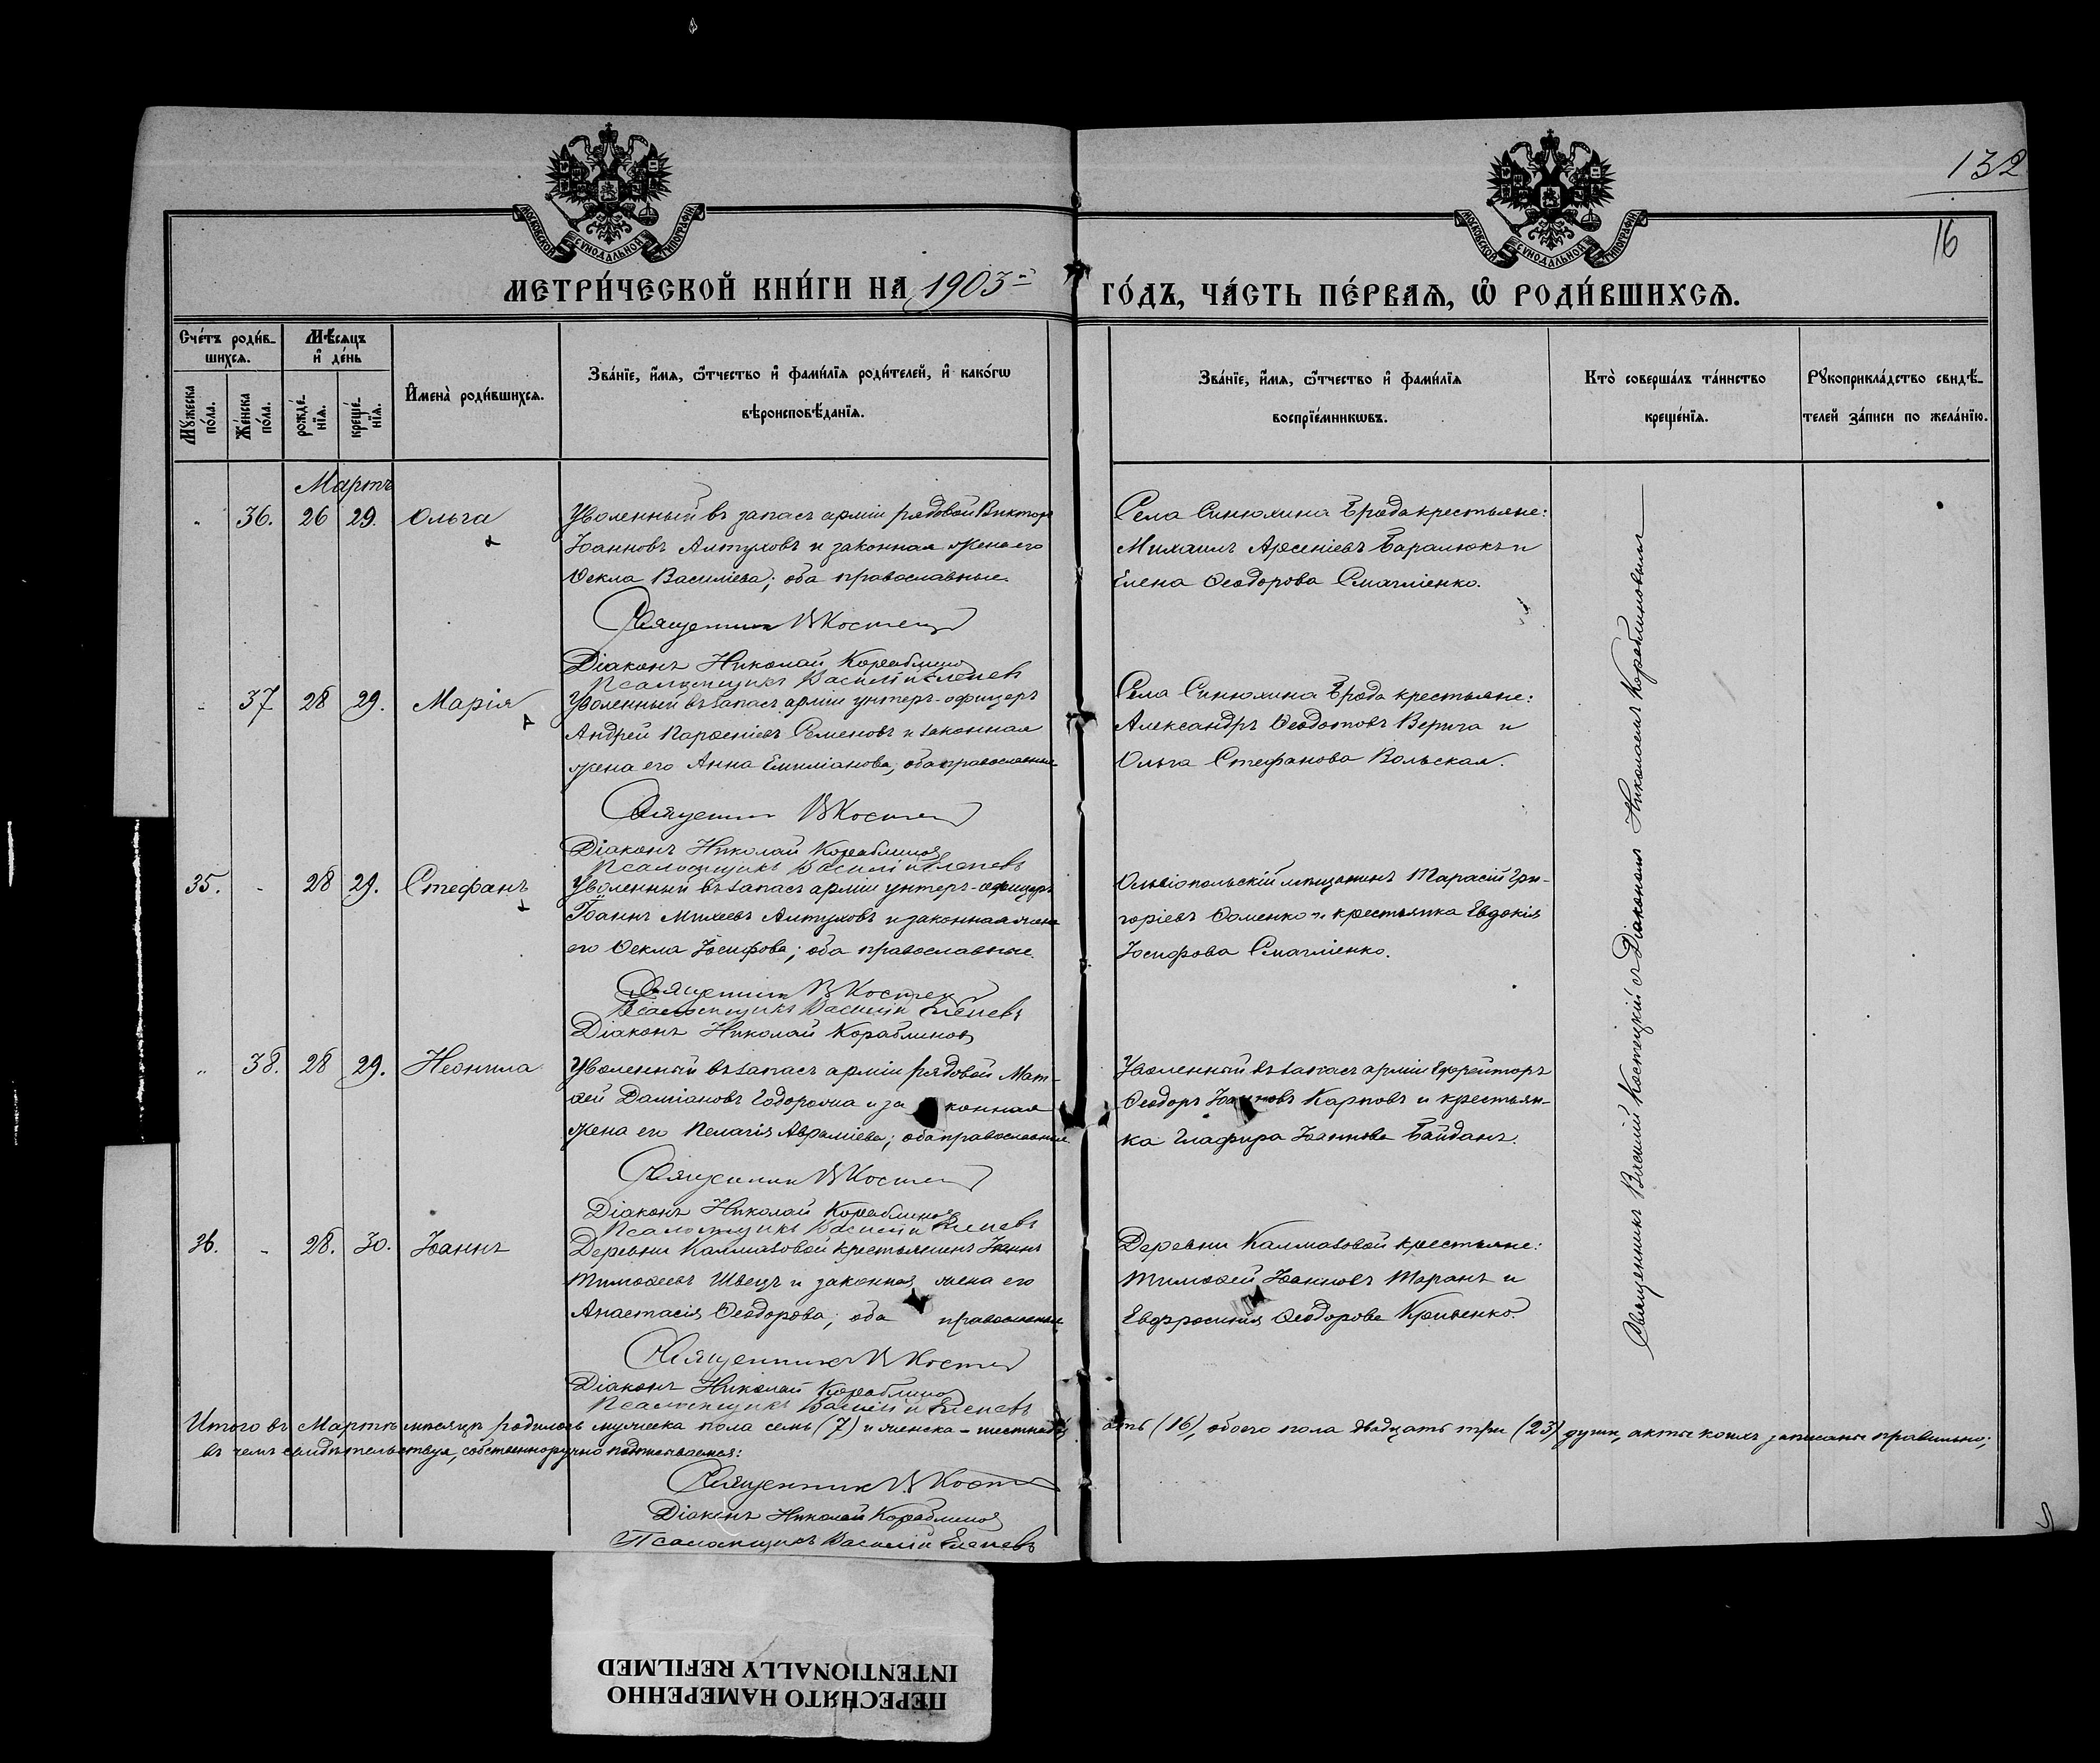 132
16
МОСКОВСКОЙ СѴНОДАЛЬНОЙ ТИПОГРАФІИ
МОСКОВСКОЙ СѴНОДАЛЬНОЙ ТИПОГРАФІИ
МЕТРИ́ЧЕСКОЙ КНИ́ГИ НА 1903й ГО́ДЪ, ЧА́СТЬ ПЕ́РВАѦ, Ѽ РОДИ́ВШИХСѦ.
Сче́тъ роди́в-
шихсѧ.
Мѣ́сѧцъ
и҆ де́нь
Мꙋ́жеска
по́ла.
Же́нска
по́ла.
рожде́-
нїѧ.
креще́-
нїѧ.
И҆мена̀ роди́вшихсѧ.
Зва́нїе, и҆́мѧ, ѻ҆́тчество и҆ фами́лїѧ роди́телей, и҆ како́гѡ
вѣроисповѣ́данїѧ.
Зва́нїе, и҆́мѧ, ѻ҆́тчество и҆ фами́лїѧ
воспрїе́мникѡвъ.
Кто̀ соверша́лъ та́инство
креще́нїѧ.
Рꙋкоприкла́дство свидѣ́-
телей за́писи по жела́нїю.
Мартъ
36. 26 29. Ольга
Уволенный въ запасъ арміи рядовой Викторъ
Іоанновъ Алтуховъ и законная жена его
Ѳекла Василіева; оба православные.
Священникъ В Костец
Діаконъ Николай Кораблиновъ
Псаломщикъ Василій Елепевъ
Села Синюхина Брода крестьяне:
Михаилъ Арсеніевъ Баралюкъ и
Елена Ѳеодорова Смагліенко.
37 28 29. Марія
Уволенный въ запасъ арміи унтеръ-офицеръ
Андрей Парѳеніевъ Семеновъ и законная
жена его Анна Емиліанова; оба православные
Священник В Костец
Діаконъ Николай Кораблиновъ
Псаломщикъ Василій Елепевъ
Села Синюхина Брода крестьяне:
Александръ Ѳеодотовъ Верига и
Ольга Стефанова Вольская.
35. - 28 29. Стефанъ
Уволенный въ запасъ арміи унтеръ-офицеръ
Іоаннъ Михеевъ Алтуховъ и законная жена
его Ѳекла Іосифова; оба православные.
Священник В Костец
Псаломщикъ Василій Елепевъ
Діаконъ Николай Кораблиновъ
Ольвіопольскій мѣщанинъ Тарасій Гри-
горіевъ Ѳоменко и крестьянка Евдокія
Іосифова Смагліенко.
" 38. 28 29. Неонила
Уволенный въ запасъ арміи рядовой Мат-
ѳей Даміановъ Годорожа и законная
жена его Пелагія Авраміева; оба православные
Священник В Костец
Діаконъ Николай Кораблиновъ
Псаломщикъ Василій Елепевъ
Уволенный въ запасъ арміи Ефрейторъ
Ѳеодоръ Іоанновъ Карповъ и крестьян-
ка Глафира Іоаннова Байданъ.
36. - 28. 30. Іоаннъ
Деревни Калмазовой крестьянинъ Іоаннъ
Тимоѳеевъ Швецъ и законная жена его
Анастасія Ѳеодорова; оба православные
Священникъ В Костец
Діаконъ Николай Кораблиновъ
Псаломщикъ Василій Елепевъ
Деревни Калмазовой крестьяне:
Тимоѳей Іоанновъ Таранъ и
Евфросинія Ѳеодорова Кривенко.
Священникъ Василій Костецкій съ Діакономъ Николаемъ Кораблиновымъ
Итого въ Мартѣ мѣсяцѣ родилось мужеска пола семь (7) и женска - шестнадцать (16), обоего пола двадцать три (23) души, акты коихъ записаны правильно;
въ чемъ свидѣтельствуя, собственноручно подписываемся:
Священник В Костец
Діаконъ Николай Кораблиновъ
Псаломщикъ Василій Елепевъ
ПЕРЕСНЯТО НАМЕРЕННО
INTENTIONALLY REFILMED